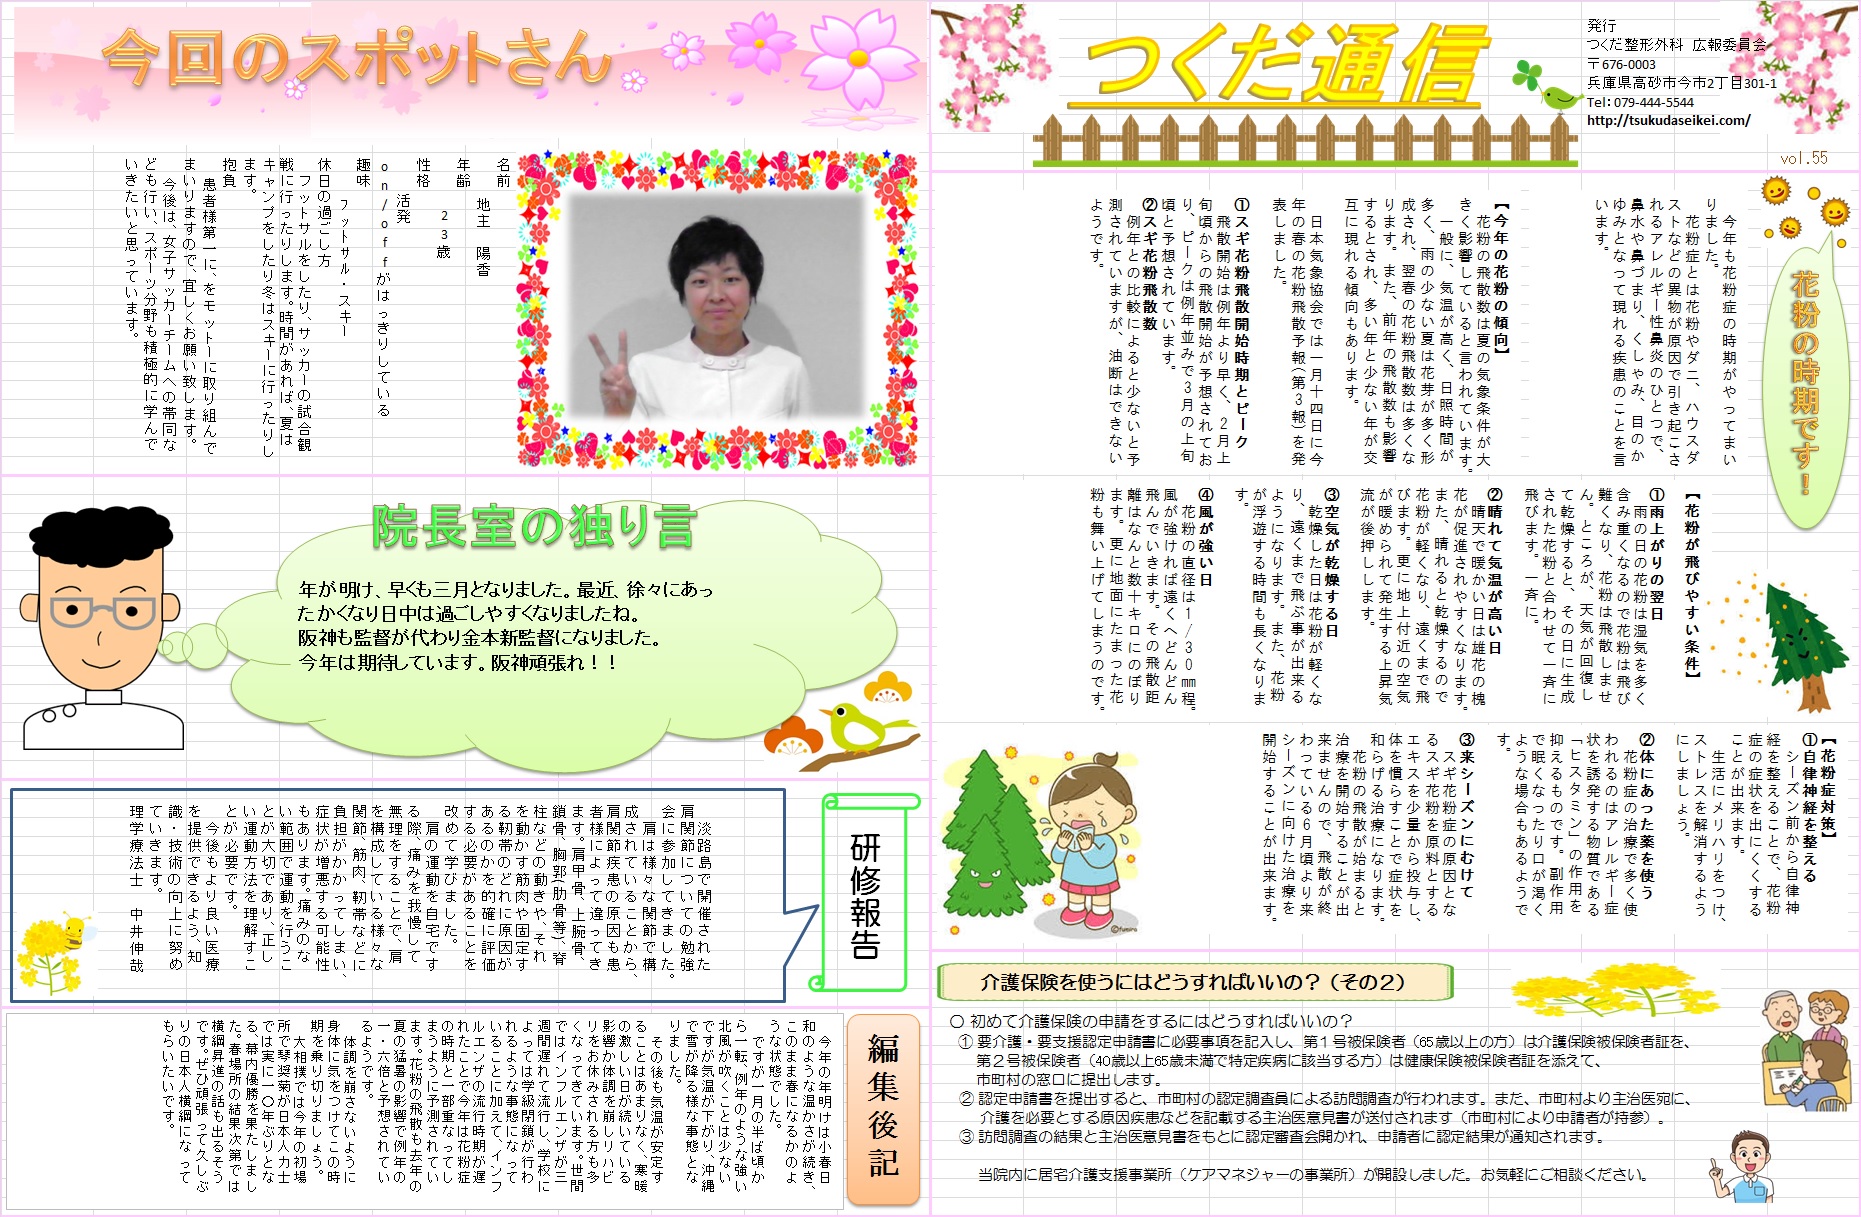 つくだ通信
発行
つくだ整形外科 広報委員会
〒676-0003
兵庫県高砂市今市2丁目301-1
Tel: 079-444-5544
http://tsukudaseikei.com/
vol.55
花粉の時期です！
今年も花粉症の時期がやってまい
りました。
花粉症とは花粉やダニ、ハウスダ
ストなどの異物が原因で引き起こさ
れるアレルギー性鼻炎のひとつで、
鼻水や鼻づまり、くしゃみ、目のか
ゆみとなって現れる疾患のことを言
います。
【今年の花粉の傾向】
花粉の飛散数は夏の気象条件が大
きく影響していると言われています。
一般に、気温が高く、日照時間が
多く、雨の少ない夏は花芽が多く形
成され、翌春の花粉飛散数は多くな
ります。また、前年の飛散数も影響
するとされ、多い年と少ない年が交
互に現れる傾向もあります。
日本気象協会では一月十四日に今
年の春の花粉飛散予報(第3報)を発
表しました。
①スギ花粉飛散開始時期とピーク
飛散開始は例年より早く、2月上
旬頃からの飛散開始が予想されてお
り、ピークは例年並みで3月の上旬
頃と予想されています。
②スギ花粉飛散数
例年との比較によると少ないと予
測されていますが、油断はできない
ようです。
【花粉が飛びやすい条件】
①雨上がりの翌日
雨の日の花粉は湿気を多く
含み重くなるので花粉は飛び
難くなり、花粉は飛散しませ
ん。ところが、天気が回復し
て乾燥すると、その日に生成
された花粉と合わせて一斉に
飛びます。一斉に。
②晴れて気温が高い日
晴天で暖かい日は雄花の槐
花が促進されやすくなります。
また、晴れると乾燥するので
花粉が軽くなり、遠くまで飛
びます。更に地上付近の空気
が暖められて発生する上昇気
流が後押しします。
③空気が乾燥する日
乾燥した日は花粉が軽くな
り、遠くまで飛ぶ事が出来る
ようになります。また、花粉
が浮遊する時間も長くなりま
す。
④風が強い日
花粉の直径は1/30㎜程。
風が強ければ遠くへどんどん
飛んでいきます。その飛散距
離はなんと数十キロにのぼり
ます。更に地面にたまった花
粉も舞い上げてしまうのです。
【花粉症対策】
①自律神経を整える
シーズン前から自律神
経を整えることで、花粉
症の症状を出にくくする
ことが出来ます。
生活にメリハリをつけ、
ストレスを解消するよう
にしましょう。
②体にあった薬を使う
花粉症の治療で多く使
われるのはアレルギー症
状を誘発する物質である
「ヒスタミン」の作用を
抑えるものです。副作用
で眠くなったり口が渇く
ような場合もあるようで
す。
③来シーズンにむけて
スギ花粉症の原因とな
るスギ花粉を原料とする
エキスを少量から投与し、
体を慣らすことで症状を
和らげる治療になります。
花粉の飛散が始まると
治療を開始することが出
来ませんので、飛散が終
わっている6月頃より来
シーズンに向けた治療を
開始することが出来ます。
©fumira
介護保険を使うにはどうすればいいの？（その２）
〇 初めて介護保険の申請をするにはどうすればいいの？
① 要介護・要支援認定申請書に必要事項を記入し、第１号被保険者（65歳以上の方）は介護保険被保険者証を、
第２号被保険者（40歳以上65歳未満で特定疾病に該当する方）は健康保険被保険者証を添えて、
市町村の窓口に提出します。
② 認定申請書を提出すると、市町村の認定調査員による訪問調査が行われます。また、市町村より主治医宛に、
介護を必要とする原因疾患などを記載する主治医意見書が送付されます（市町村により申請者が持参）。
③ 訪問調査の結果と主治医意見書をもとに認定審査会開かれ、申請者に認定結果が通知されます。
当院内に居宅介護支援事業所（ケアマネジャーの事業所）が開設しました。お気軽にご相談ください。
今回のスポットさん
名前
地主 陽香
年齢
23歳
性格
活発
on/offがはっきりしている
趣味
フットサル・スキー
休日の過ごし方
フットサルをしたり、サッカーの試合観
戦に行ったりします。時間があれば、夏は
キャンプをしたり冬はスキーに行ったりし
ます。
抱負
患者様第一に、をモットーに取り組んで
まいりますので、宜しくお願い致します。
今後は、女子サッカーチームへの帯同な
ども行い、スポーツ分野も積極的に学んで
いきたいと思っています。
院長室の独り言
年が明け、早くも三月となりました。最近、徐々にあっ
たかくなり日中は過ごしやすくなりましたね。
阪神も監督が代わり金本新監督になりました。
今年は期待しています。阪神頑張れ！！
研修報告
淡路島で開催された
肩関節についての勉強
会に参加してきました。
肩は様々な関節で構
成されていることから、
肩関節疾患の原因も患
者様によって違ってき
ます。肩甲骨、上腕骨、
鎖骨、胸郭(肋骨等)、脊
柱などの動きや、それ
を動かす筋肉や固定す
る靭帯のどれに原因が
あるのかを的確に評価
する必要があることを
改めて学びました。
肩の運動を自宅です
る際、痛みを我慢して
無理をすることで、肩
を構成している様々な
関節、筋肉、靭帯などに
負担がかかってしまい、
症状が増悪する可能性
もあります。痛みのな
い範囲で運動を行うこ
とが大切であり、正し
い運動方法を理解するこ
とが必要です。
今後もより良い医療
を提供できるよう、知
識・技術の向上に努め
ていきます。
理学療法士 中井伸哉
編集後記
今年の年明けは小春日
和のような温かさが続き、
このまま春になるかのよ
うな状態でした。
ですが一月の半ば頃か
ら一転、例年のような強い
北風が吹くことは少ない
ですが気温が下がり、沖縄
で雪が降る様な事態とな
りました。
その後も気温が安定す
ることはあまりなく、寒暖
の激しい日が続いている
影響か体調を崩しリハビ
リをお休みされる方も多
くなってきています。世間
ではインフルエンザが三
週間遅れて流行し、学校に
よっては学級閉鎖が行わ
れるような事態になって
いることに加えて、インフ
ルエンザの流行時期が遅
れたことで今年は花粉症
の時期と一部重なってし
まうように予測されてい
ます。花粉の飛散も去年の
夏の猛暑の影響で例年の
一・六倍と予想されてい
るようです。
体調を崩さないように
身体に気をつけてこの時
期を乗り切りましょう。
大相撲では今年の初場
所で琴奨菊が日本人力士
では実に一〇年ぶりとな
る、幕内優勝を果たしまし
た。春場所の結果次第では
横綱昇進の話も出るそう
です。ぜひ頑張って久しぶ
りの日本人横綱になって
もらいたいです。